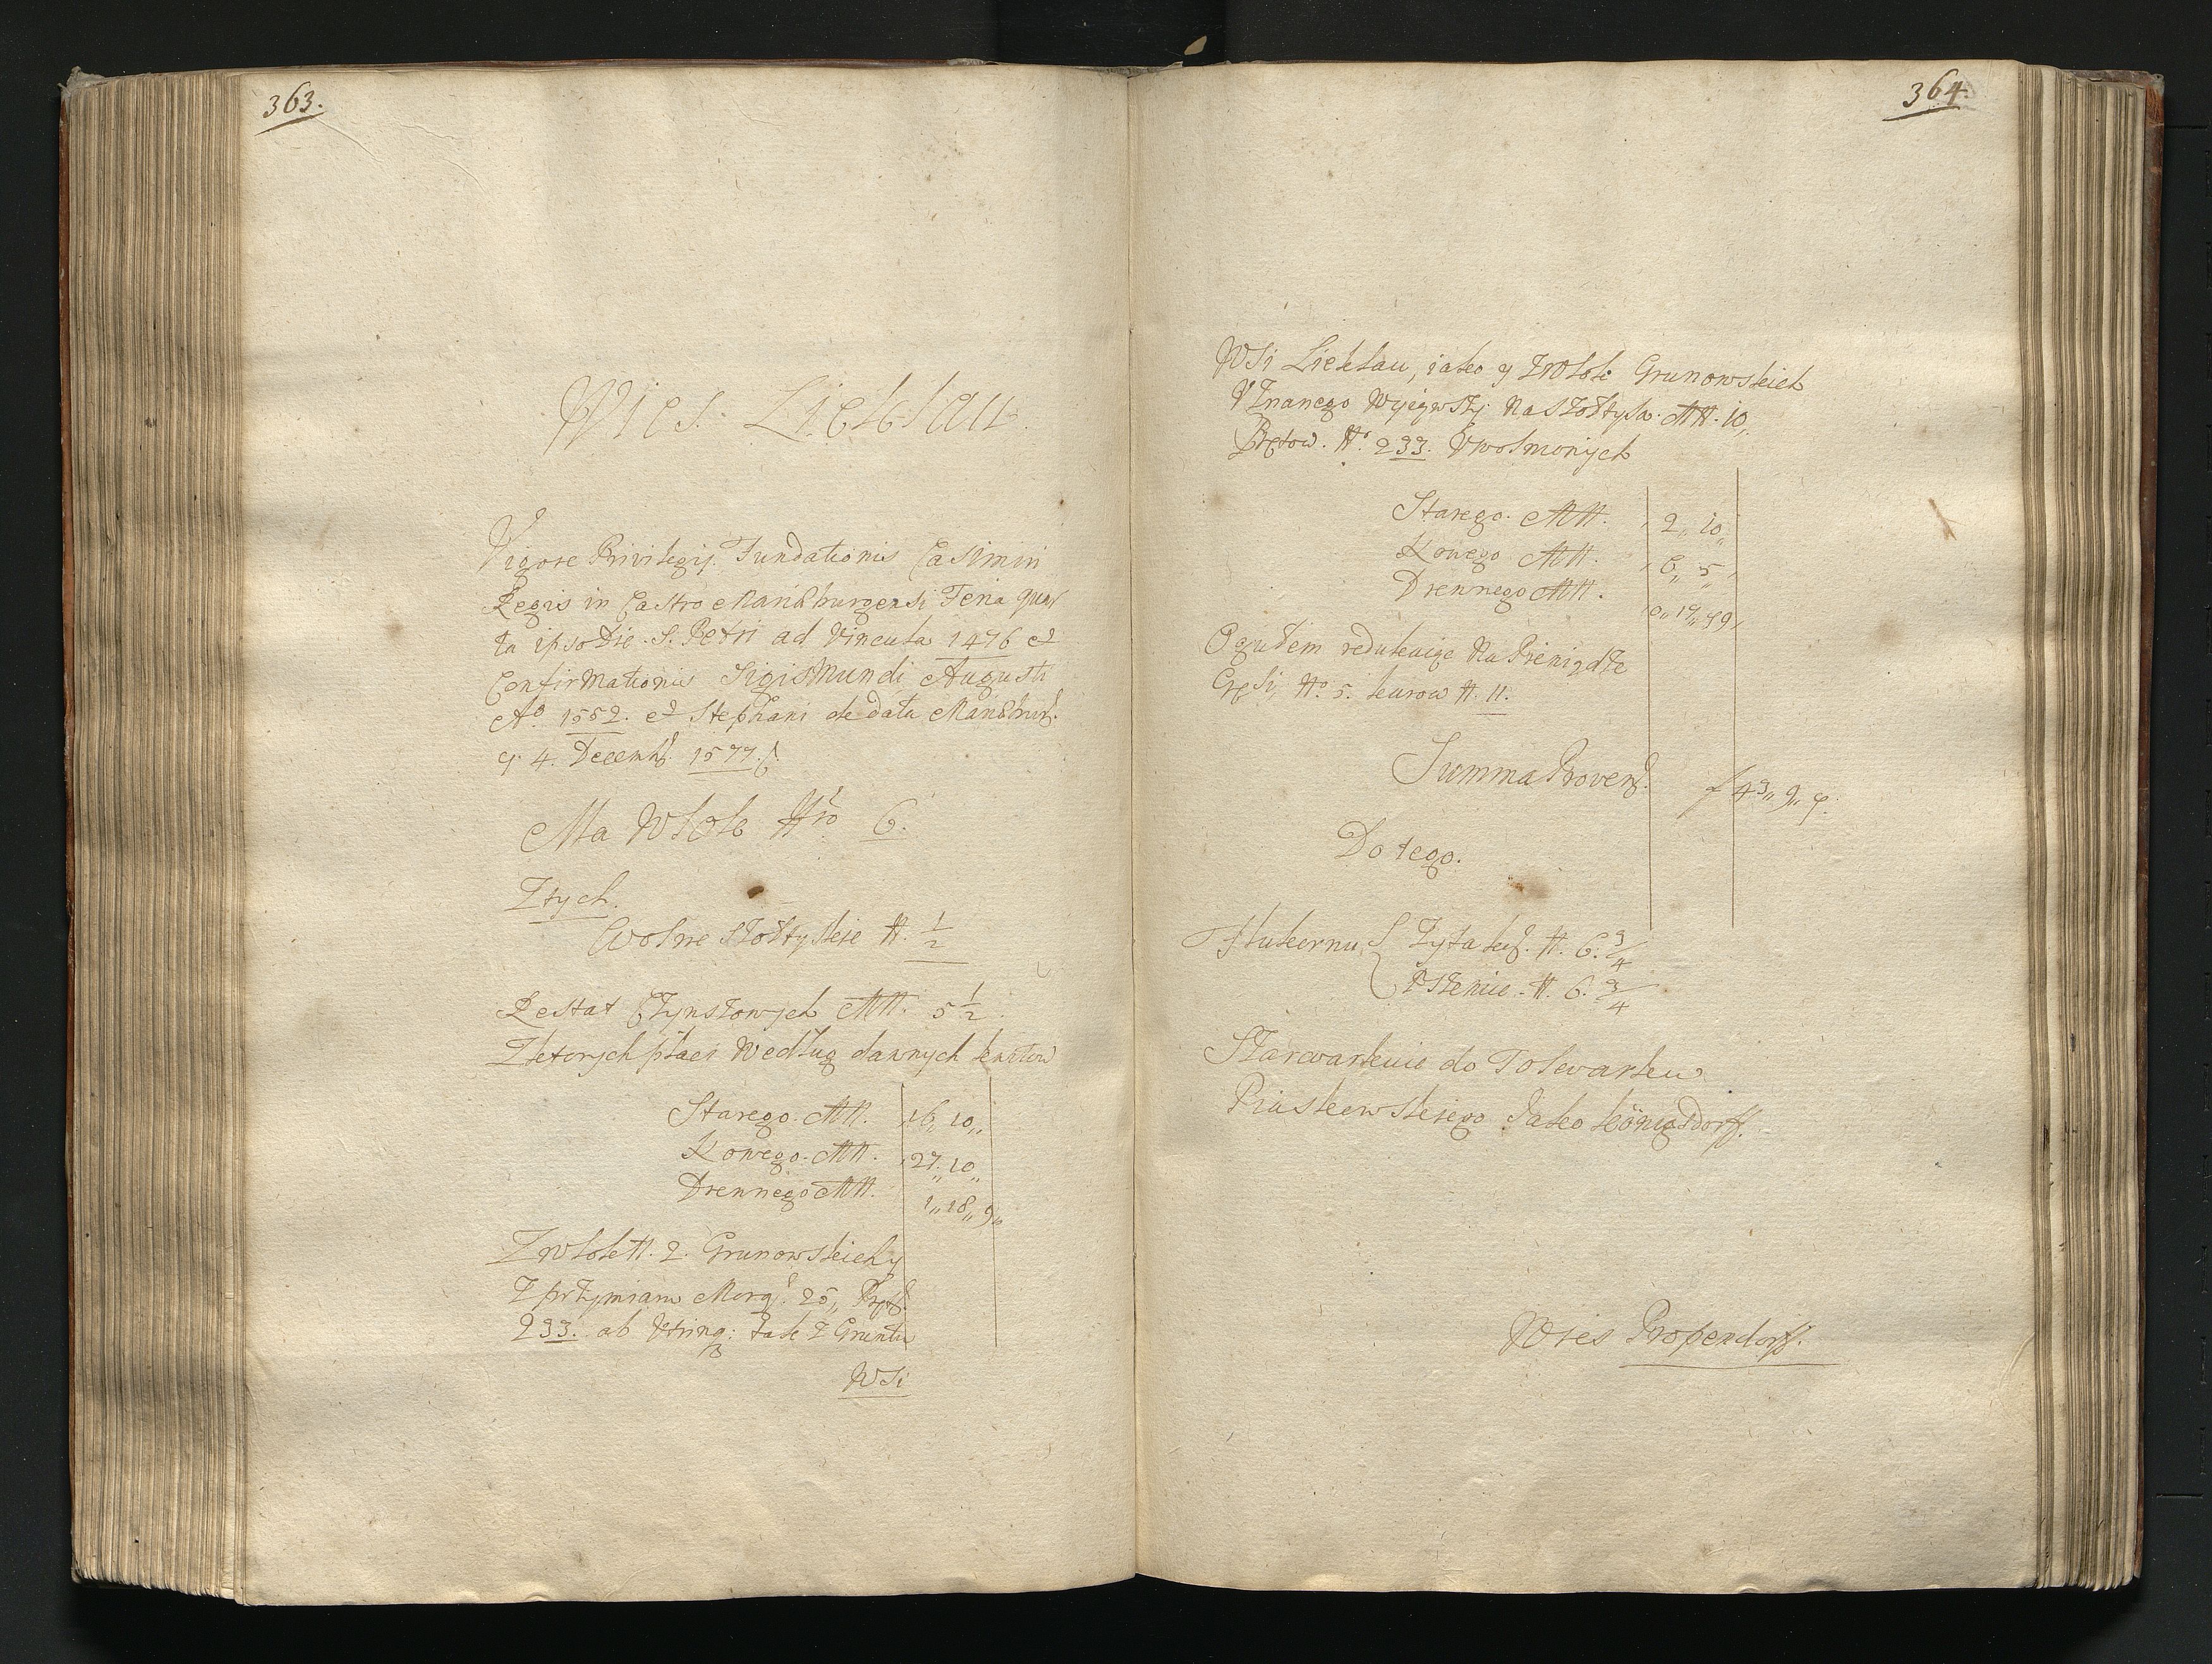 363.
Wies Liekłau.
Vigore Privilegij Fundationis Casimiri
Regis in Castro Mariæburgensi Feria quar
ta ipso Die S. Petri ad Vincula 1476 et
Confirmationis Sigismundi Augusti
Aº 1552. et Stephani de data Mariæburg.
d. 4. Decemb. 1577.
Ma Włok Nro 6.
Z tych.
Wolne Szołtyskie N. 1/2
Restat Czynszowych NN. 5 1/2
Z ktorych płaci Według dawnych kwitow
Starego NN. 16,, 10,,
Nowego NN. 27,, 10,,
Drewnego NN. 1,, 18,, 9,,
Z włok N. 2. Grunowskich y
Z przymiaru Morg. 25,, Pręt.
233. ab utrinq: tak z Gruntu
Wsi
364.
Wsi Liekłau, iako y z włok Grunowskich
Vznanego wyiąwszy na Szołtysa NN. 10,,
Prętow. Nº 233. Vwolnionych
Starego NN. 2,, 10,,
Nowego NN. 6,, 5,,
Drewnego NN.
Ogułem redukuiąc na Pieniądze
Gęsi, Nº 5. kurow N. 11.
Summa Provent. f 43,, 9,,
Do tego.
Żyta kor. N. 6. 3/4
Pszenice N. 6. 3/4
Szarwarkuie do Folwarku
Piaskowskiego Jako Königsdorff.
Wies Propendorff.